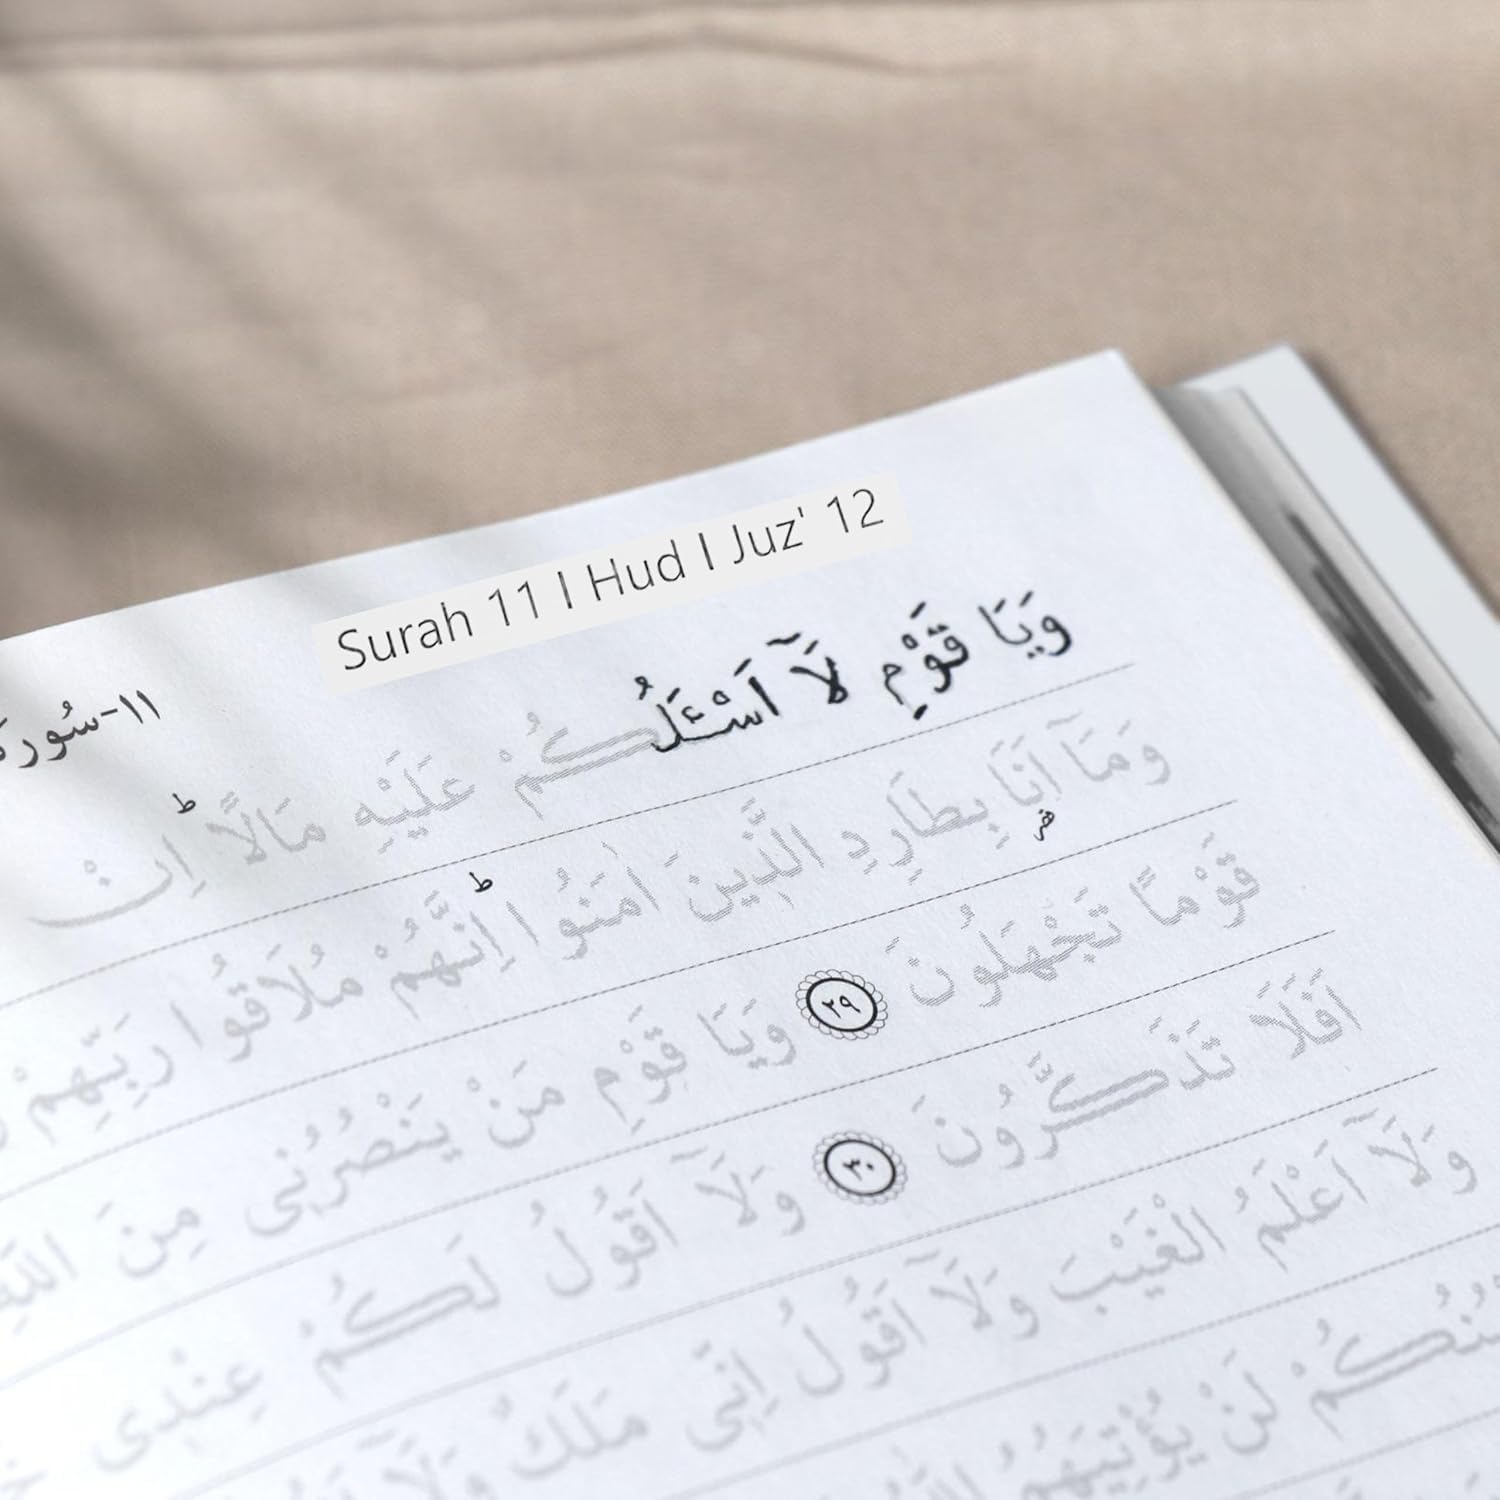 Surah 11 I Hud I Juz' 12
١١-سُورَة
وَيَا قَوْمِ لَآ اَسْـَٔلُكُمْ عَلَيْهِ مَالًا ط اِنْ
وَمَآ اَنَا بِطَارِدِ الَّذِينَ اٰمَنُوا ط اِنَّهُمْ مُلَاقُوا رَبِّهِمْ
قَوْمًا تَجْهَلُونَ ٢٩ وَيَا قَوْمِ مَنْ يَنْصُرُنِى مِنَ اللّٰهِ
اَفَلَا تَذَكَّرُونَ ٣٠ وَلَآ اَقُولُ لَكُمْ عِنْدِى
وَلَآ اَعْلَمُ الْغَيْبَ وَلَآ اَقُولُ اِنِّى مَلَكٌ وَلَآ
لَنْ يُؤْتِيَهُمُ اللّٰهُ